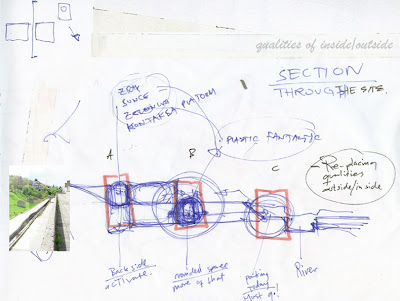 qualities of inside/outside
SECTION
THROUGH THE SITE.
ZRAK
SUNCE
ZELENILO
KONTAKT PLATFORM
PLASTIC FANTASTIC
A
B
C
Re-placing
qualities
outside/inside
Back side
activate.
rounded space
more of that
parking
today
Must go!
River